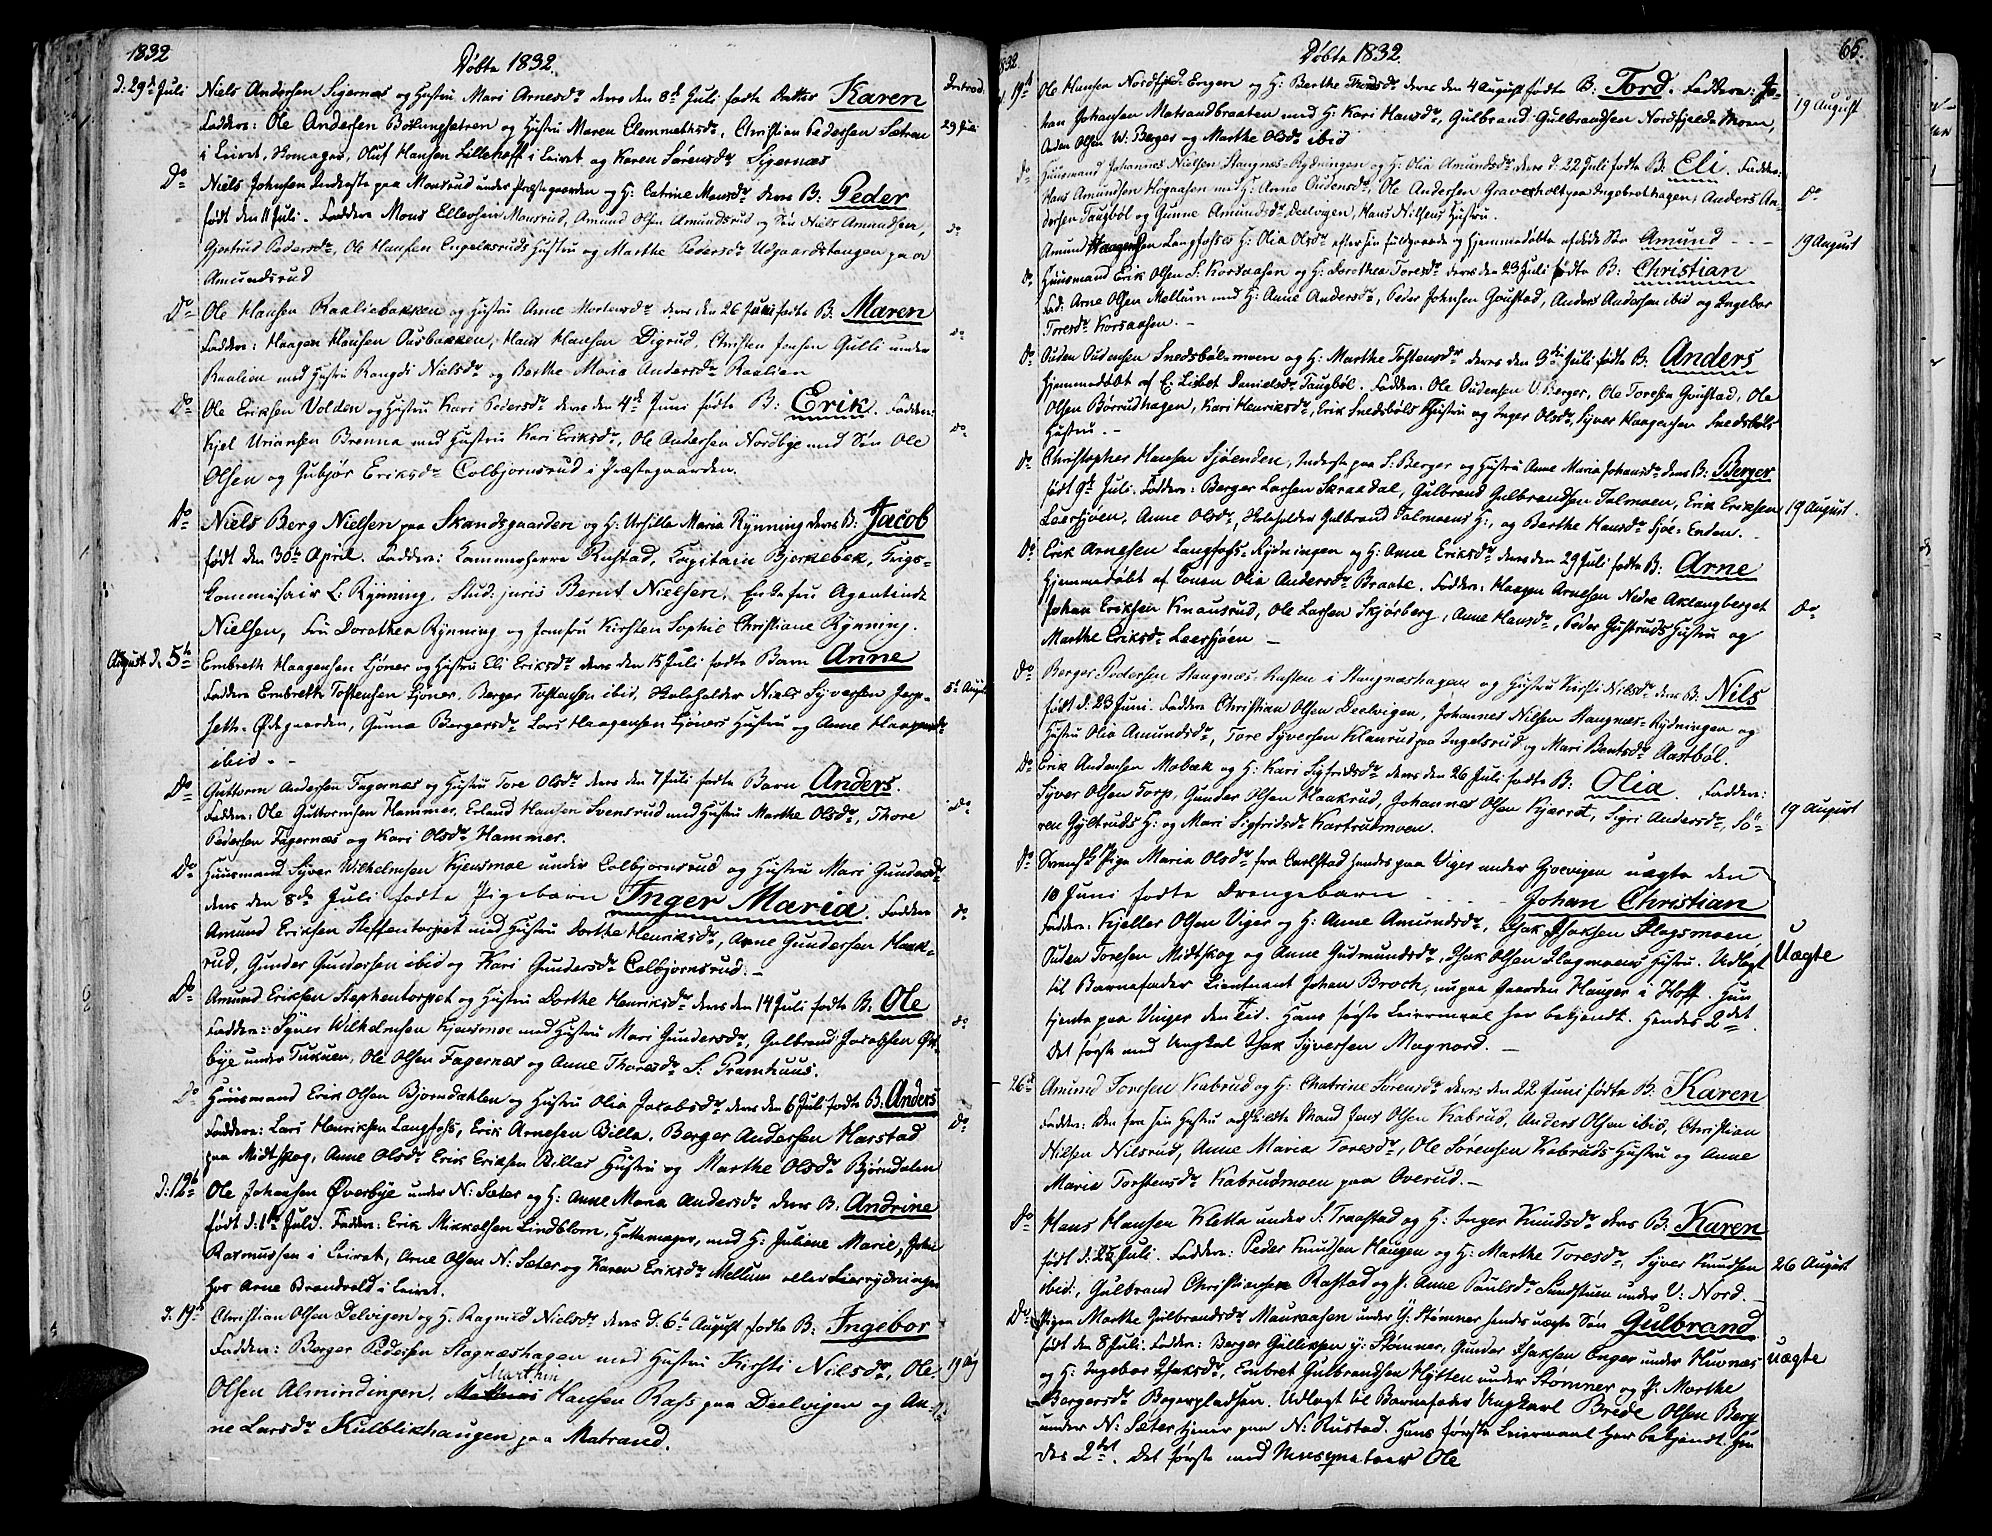 1832
Døbte 1832.
d: 29de Juli
Niels Andersen Sigernæs og Hustru Mari Arnesdr deres den 8de Juli fødte Datter Karen
Introd.
Faddere: Ole Andersen Bölungsætren og Hustru Maren Clemmetsdr, Christian Pedersen Sætren
29 Juli
i Leiret, Skomager, Oluf Hansen Lillehoff i Leiret og Karen Sørensdr Sigernæs
Do
Niels Johnsen Inderste paa Monsrud under Præstegaarden og H: Catrine Monsdr deres B: Peder
født den 11 Juli. Faddere Mons Ellevsen Monsrud, Amund Olsen Amundsrud og Søn Niels Amundsen,
do
Gjertrud Pedersdr, Ole Hansen Hustru og Marthe Pedersdr Udgaardstangen paa
Amundsrud
Do
Ole Hansen Raaliebakken og Hustru Anne Mortensdr deres den 26 Juni fødte B: Maren
Faddere: Haagen Hansen Ousbakken, Hans Hansen Digrud, Christen Jensen Gulli under
do
Raalien med Hustru Rangdi Nielsdr og Berthe Maria Andersdr Raalien
Do
Ole Eriksen Volden og Hustru Kari Pedersdr deres den 4de Juni fødte B: Erik. Fadder:
Kjel Uriansen Brenna med Hustru Kari Eriksdr, Ole Andersen Nordbye med Søn Ole
do
Olsen og Gubjør Eriksdr Colbjornsrud i Præstegaarden.
Do
Niels Berg Nielsen paa Skandsgaarden og H: Ursilla Maria Rynning deres B: Jacob
født den 30te April. Faddere: Kammerherre Rustad, Kapitain Bjerkebek, Krigs-
kommisair L: Rynning, Stud: juris Bernt Nielsen, Enkefru Agentinde
Nielsen, Fru Dorothea Rynning og Jomfru Kirsten Sophie Christiane Rynning.
August d. 5te
Embreth Haagensen Ljöner og Hustru Eli Eriksdr deres den 15 Juli fødte Barn Anne
Faddere Embreth Tostensen Ljöner, Berger Tostensen ibid, Skoleholder Niels Syversen Jep-
5te August
seth-Ødegaarden, Guna Bergersdr Lars Haagensen Ljöners Hustru og Anne Haagensdr
ibid. -
Do
Guttorm Andersen Fagernæs og Hustru Tore Olsdr deres den 7 Juli fødte Barn Anders.
Fadder: Ole Guttormsen Hammer, Erland Hansen Svensrud med Hustru Marthe Olsdr, Thore
Do
Pedersen Fagernæs og Kari Olsdr Hammer.
Do
Huusmand Syver Wilhelmsen Kjensmoe under Colbjornsrud og Hustru Mari Gundersdr
deres den 8de Juli fødte Pigebarn Inger Maria. Fadder
do
Amund Eriksen Steffentorpet med Hustru Dorthe Henriksdr, Arne Gundersen Haak-
rud, Gunder Gundersen ibid og Kari Gundersdr Colbjornsrud. -
Do
Amund Eriksen Stephentorpet og Hustru Dorthe Henriksdr deres den 14 Juli fødte B: Ole
Faddere: Syver Wilhelmsen Kjensmoe med Hustru Mari Gundersdr, Gulbrand Jacobsen Øst-
do
bye under Tukuen, Ole Olsen Fagernæs og Anne Thoresdr S: Pramhuus.
Do
Huusmand Erik Olsen Bjorndahlen og Hustru Olia Jacobsdr deres den 6 Juli fødte B. Anders
Faddere: Lars Henriksen Langfoss, Erik Arnesen Billa, Berger Andersen Harstad
do
paa Midtskog, Anne Olsdr Erik Eriksen Billas Hustru og Marthe Olsdr Bjørndalen
d: 12te
Ole Johansen Øverbye under N: Sæter og H: Anne Maria Andersdr deres B: Andrine
født d: 1te Juli. Fadder: Erik Mikkelsen Lindblom, Hattemager, med H: Juliane Marie, John
Rasmussen i Leiret, Arne Olsen N: Sæter og Karen Eriksdr Mellum eller Lierrydningen
hos Arne Brandvold i Leiret.
d. 19de
Christian Olsen Delvigen og H. Ragnild Nielsdr deres d. 6te August fødte B: Ingebor
Faddere: Berger Pedersen Stagnæshagen med Hustru Kirsti Nilsdr, Ole
19 Aug
Marthin
Olsen Almindingen, Hansen Rass paa Deelvigen og An-
ne Larsdr Kulblikhaugen paa Matrand.
1832.
Døbte 1832.
65.
d 19de
Ole Hansen Nordfjelds Engen og H: Berthe Thordsdr deres den 4 August fødte B: Tord. Faddere: Jo-
19 August
han Johansen Matrandbraaten med H: Kari Hansdr, Gulbrand Gulbrandsen Nordfjelds Moen,
Auden Olsen W. Berger og Marthe Olsdr ibid
do
Huusmand Johannes Nielsen Stangnæs-Rydningen og H: Olia Amundsdr deres d. 22 Juli fødte B: Eli. Fadder:
Hans Amundsen Høgaasen med H: Anne Oudensdr, Ole Andersen Graversholt paa Ingebretshagen, Anders An-
Do
dersen Taugböl og Gunne Amundsdr Deelvigen, Hans Nilsens Hustru.
Amund Haagensen Langfosses H: Olia Olsdr efter sin fuldgaaede og hjemmedøbte afdøde Søn Amund - - -
19 August
Do
Huusmand Erik Olsen S. Korsaasen og H: Dorothea Toresdr deres den 23 Juli fødte B: Christian
Fad: Arne Olsen Mellum med H: Anne Andersdr, Peder Johnsen Goustad, Anders Andersen ibid og Ingebor
Toresdr Korsaasen. -
Do
Ouden Oudensen Snedsböl-moen og H: Marthe Tostensdr deres den 3die Juli fødte B: Anders
hjemmedöbt af E: Lisbet Danielsdr Taugböl. Faddere: Ole Oudensen V. Berger, Ole Toresen Goustad, Ole
Olsen Børrudhagen, Kari Henriksdr, Erik Snedsböls Hustru og Inger Olsdr, Syver Haagensen Snedsböls
Hustru. -
do
Christopher Hansen Sjöenden, Inderste paa S: Berger og Hustru Anne Maria Johansdr deres B: Berger
født 9de Juli. Faddere: Berger Larsen Skraadal, Gulbrand Gulbrandsen Talmoen, Erik Eriksen
19 August.
Leersjøen, Anne Olsdr, Skoleholder Gulbrand Talmoens H:, og Berthe Hansdr Sjöe-Enden.
Do
Erik Arnesen Langfoss-Rydningen og H: Anne Eriksdr deres den 29 Juli fødte B: Arne
hjemmedöbt af Konen Olia Andersdr Braate. Faddere: Haagen Arnesen Nedre Aklangberget
Johan Eriksen Knausrud, Ole Larsen Skjörberg, Anne Hansdr, Peder Gustruds Hustru og
Do
Marthe Eriksdr Leersjöen -
Do
Berger Pedersen Stangnæs-Kasten i Stangnæshagen og Hustru Kirsti Nilsdr deres B: Nils
født d: 23 Juni. Faddere Christian Olsen Deelvigen, Johannes Nilsen Stangnæs-Rydningen og
Hustru Olia Amundsdr, Tore Syversen Klanrud paa Ingelsrud og Mari Bentsdr Aastböl.
Do
Erik Andersen Mobæk og H: Kari Sigfridsdr deres den 26 Juli fødte B: Olia. Faddere:
Syver Olsen Torp, Gunder Olsen Haakrud, Johannes Olsen Kjærret, Sigri Andersdr, Sö-
19 August
ren Gyltruds H: og Mari Sigfridsdr Kartrudmoen.
Do
Svensk Pige Maria Olsdr fra Carlstad hendes paa Viger under Gjövigen uægte den
10 Juni fødte Drengebarn - - - - Johan Christian
Fadder: Kjeller Olsen Viger og H: Anne Amundsdr, Isak Isaksen Flagsmoen
Ouden Toresen Midtskog og Anne Gudmundsdr, Isak Olsen Flagmoens Hustru. Udlagt
Uægte
til Barnefader Lieutnant Johan Broch, nu paa Gaarden Hauger i Hoff. Hun
tjente paa Vinger den Tid. Hans første Leiermaal her bekjendt. Hendes 2det.
Det første med Ungkal Isak Syversen Magnord. -
- 26de
Amund Toresen Kabrud og H: Chatrine Sörensdr deres den 22 Juni fødte B: Karen
Faddere: Den fra sin Hustru adskildte Mand Jens Olsen Kabrud, Anders Olsen ibid, Christian
Nilsen Nilsrud, Anne Maria Toresdr, Ole Sørensen Kabruds Hustru og Anne
Maria Torstensdr Kabrudmoen paa Overud. -
Do
Hans Hansen Kletta under S: Traastad og H: Inger Knudsdr deres B: Karen
født d: 25 Juli. Faddere: Peder Knudsen Haugen og H: Marthe Toresdr, Syver Knudsen
26 August
ibid:, Gulbrand Christiansen Rastad og P. Anne Paulsdr Sundstuen under V: Nord.
Do
Pigen Marthe Gulbrandsdr Mauraasen under Y: Stömner hendes uægte Søn Gulbrand
født den 8 Juli. Fadder: Berger Gulliksen y: Stømner, Gunder Isaksen Enger under Huvnæs
Uægte
og H: Ingebor Isaksdr, Embret Gulbrandsen Hytten under Stømner og P. Marthe
Bergersdr Begerpladsen. Udlagt til Barnefader Ungkarl Brede Olsen Berg
under N: Sæter tjener paa N: Rustad. Hans første Leiermaal her bekjendt. Hen
des 2det. Det første med Musqueteer Ole